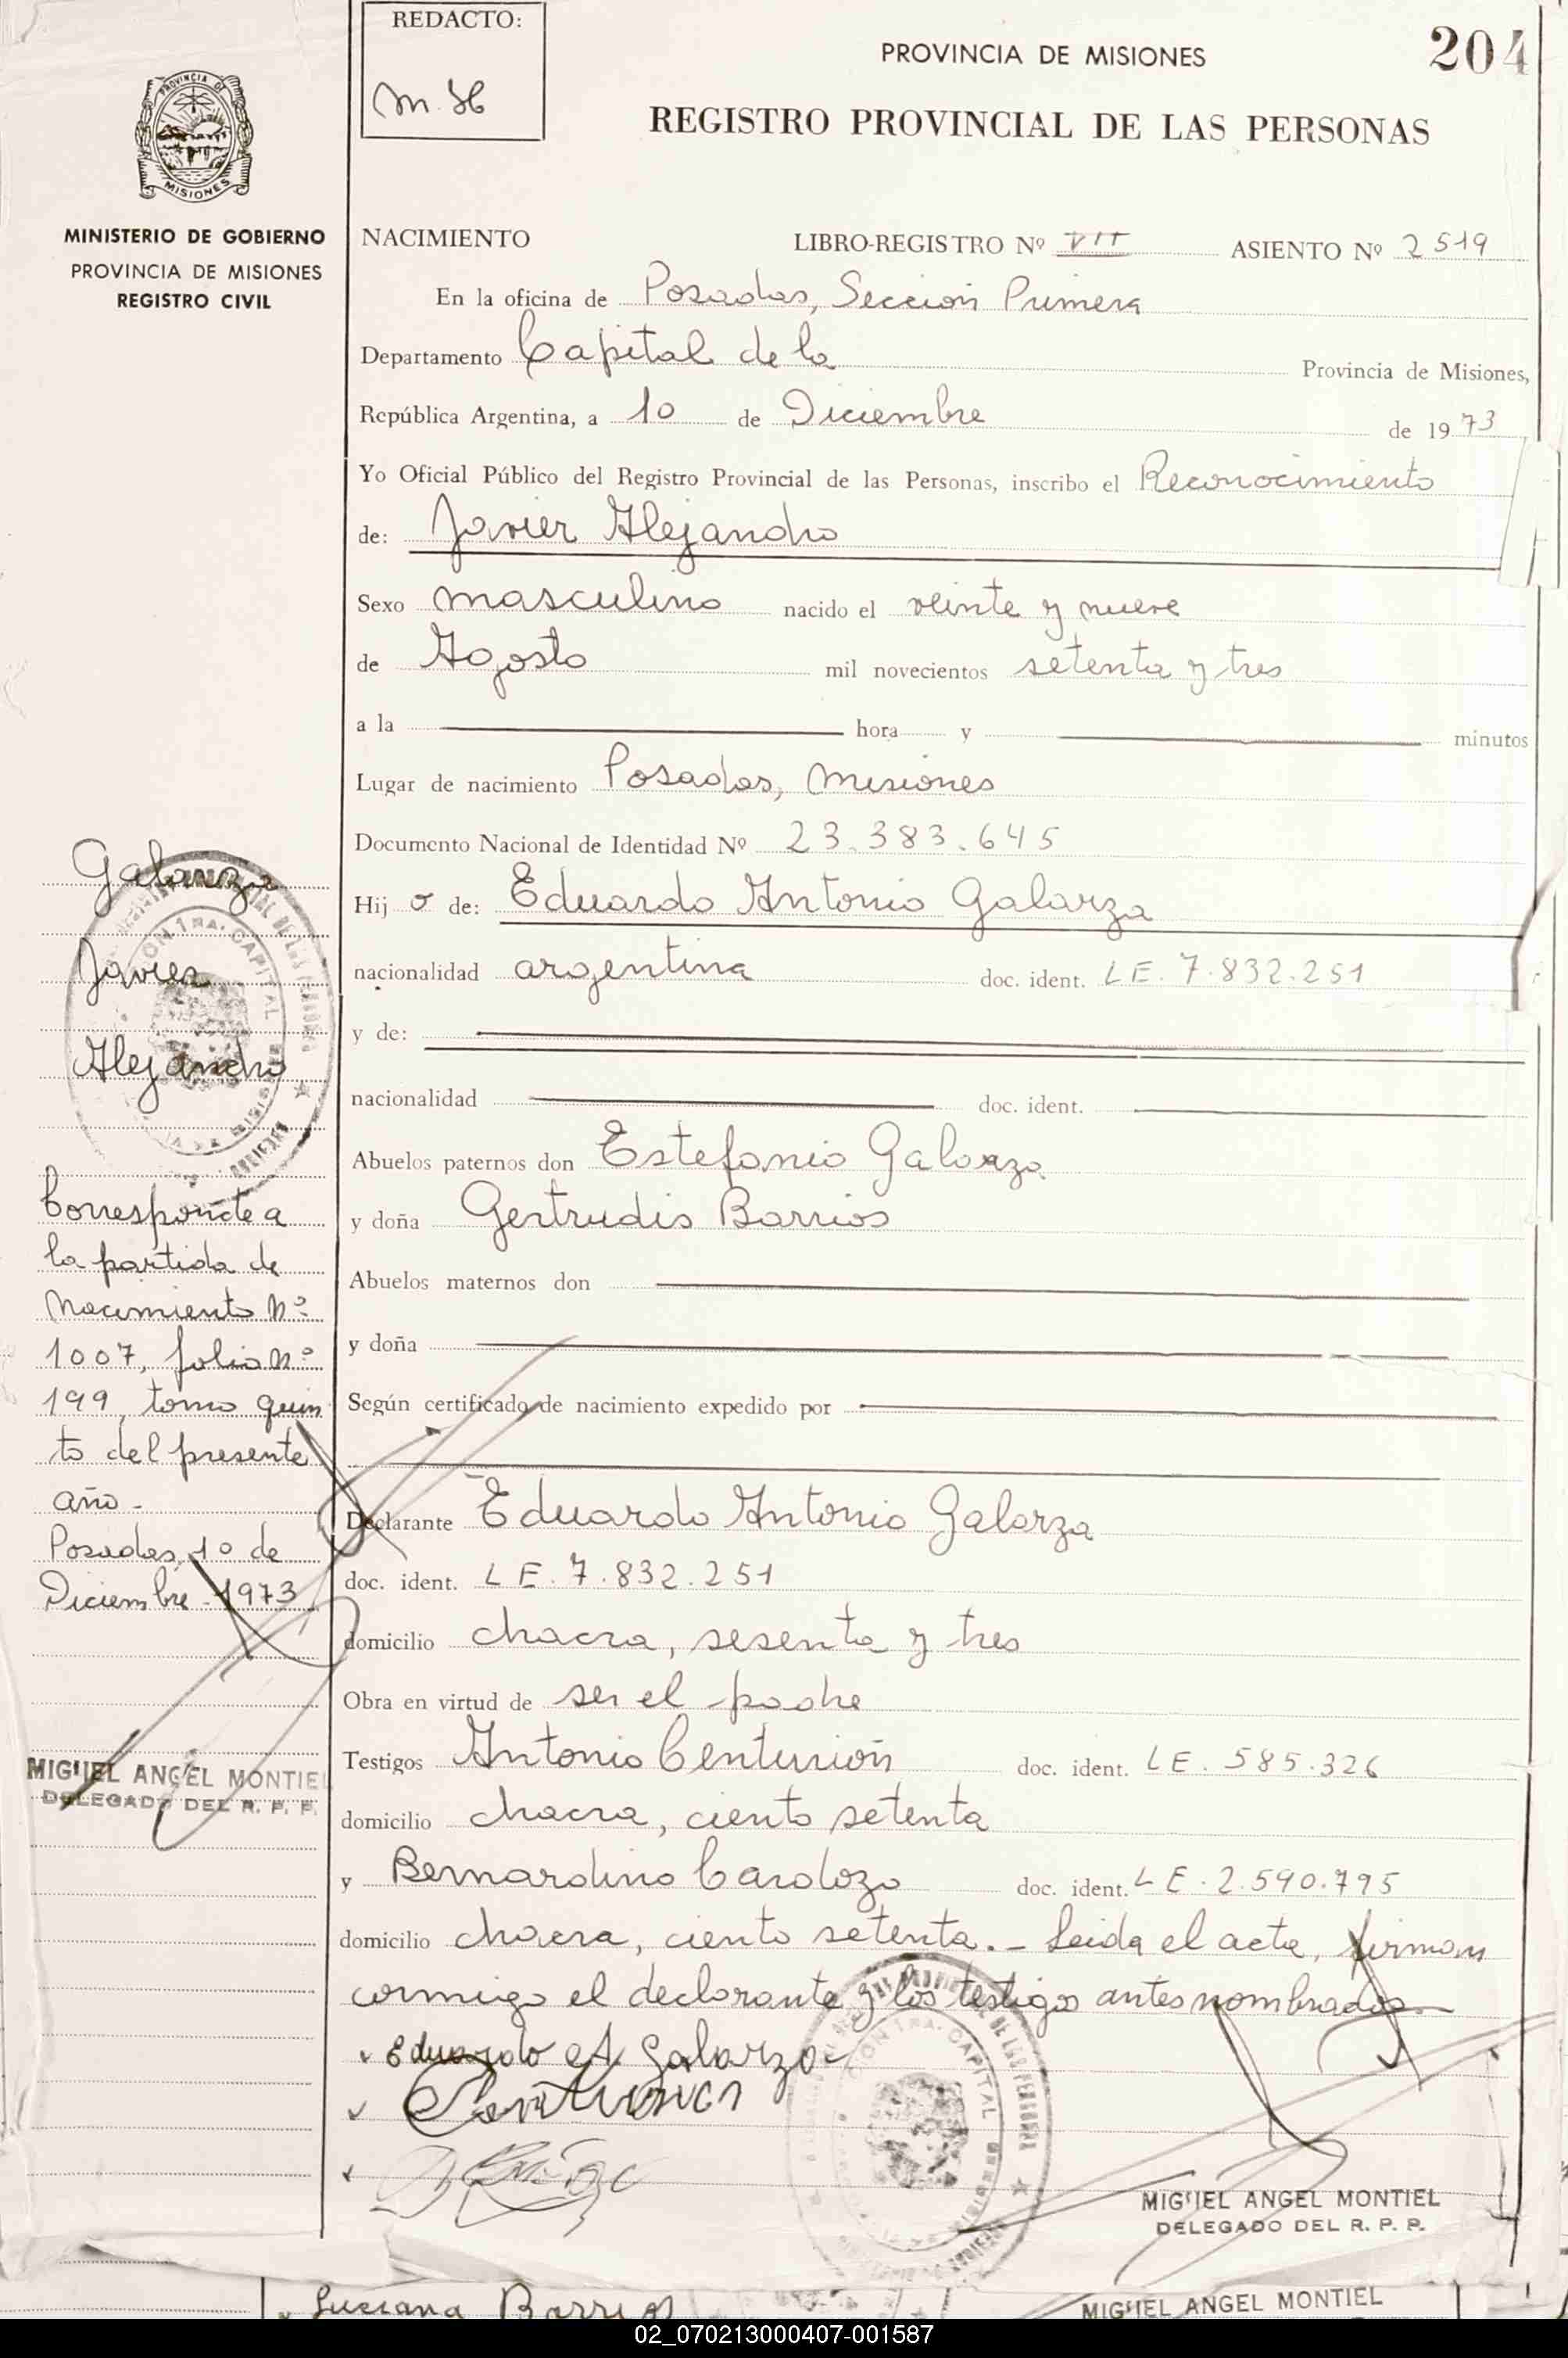 REDACTO:
M. 86
PROVINCIA DE MISIONES
204
REGISTRO PROVINCIAL DE LAS PERSONAS
PROVINCIA DE
MISIONES
MINISTERIO DE GOBIERNO
PROVINCIA DE MISIONES
REGISTRO CIVIL
NACIMIENTO LIBRO-REGISTRO Nº VII ASIENTO Nº 2519
En la oficina de Posadas, Sección Primera
Departamento Capital de la Provincia de Misiones,
República Argentina, a 10 de Diciembre de 1973
Yo Oficial Público del Registro Provincial de las Personas, inscribo el Reconocimiento
de: Javier Alejandro
Sexo masculino nacido el veinte y nueve
de Agosto mil novecientos setenta y tres
a la hora y minutos
Lugar de nacimiento Posadas, Misiones
Documento Nacional de Identidad Nº 23.383.645
Hijo de: Eduardo Antonio Galarza
nacionalidad argentina doc. ident. LE. 7.832.251
y de:
nacionalidad doc. ident.
Abuelos paternos don Estefanio Galarza
y doña Gertrudis Barrios
Abuelos maternos don
y doña
Según certificado de nacimiento expedido por
Declarante Eduardo Antonio Galarza
doc. ident. LE. 7.832.251
domicilio chacra, sesenta y tres
Obra en virtud de ser el padre
Testigos Antonio Centurión doc. ident. LE. 585.326
domicilio chacra, ciento setenta
y Bernardino Cardozo doc. ident. LE. 2.590.795
domicilio chacra, ciento setenta.- Leida el acta, firman
conmigo el declarante y los testigos antes nombrados
Eduardo A Galarza
Centurion
MIGUEL ANGEL MONTIEL
DELEGADO DEL R. P. P.
Galarza
Javier
Alejandro
Corresponde a
la partida de
Nacimiento Nº
1007, folio Nº
199, tomo quin
to del presente
año.-
Posadas, 10 de
Diciembre-1973
MIGUEL ANGEL MONTIEL
DELEGADO DEL R. P. P.
Luciana Barrios
MIGUEL ANGEL MONTIEL
02_070213000407-001587